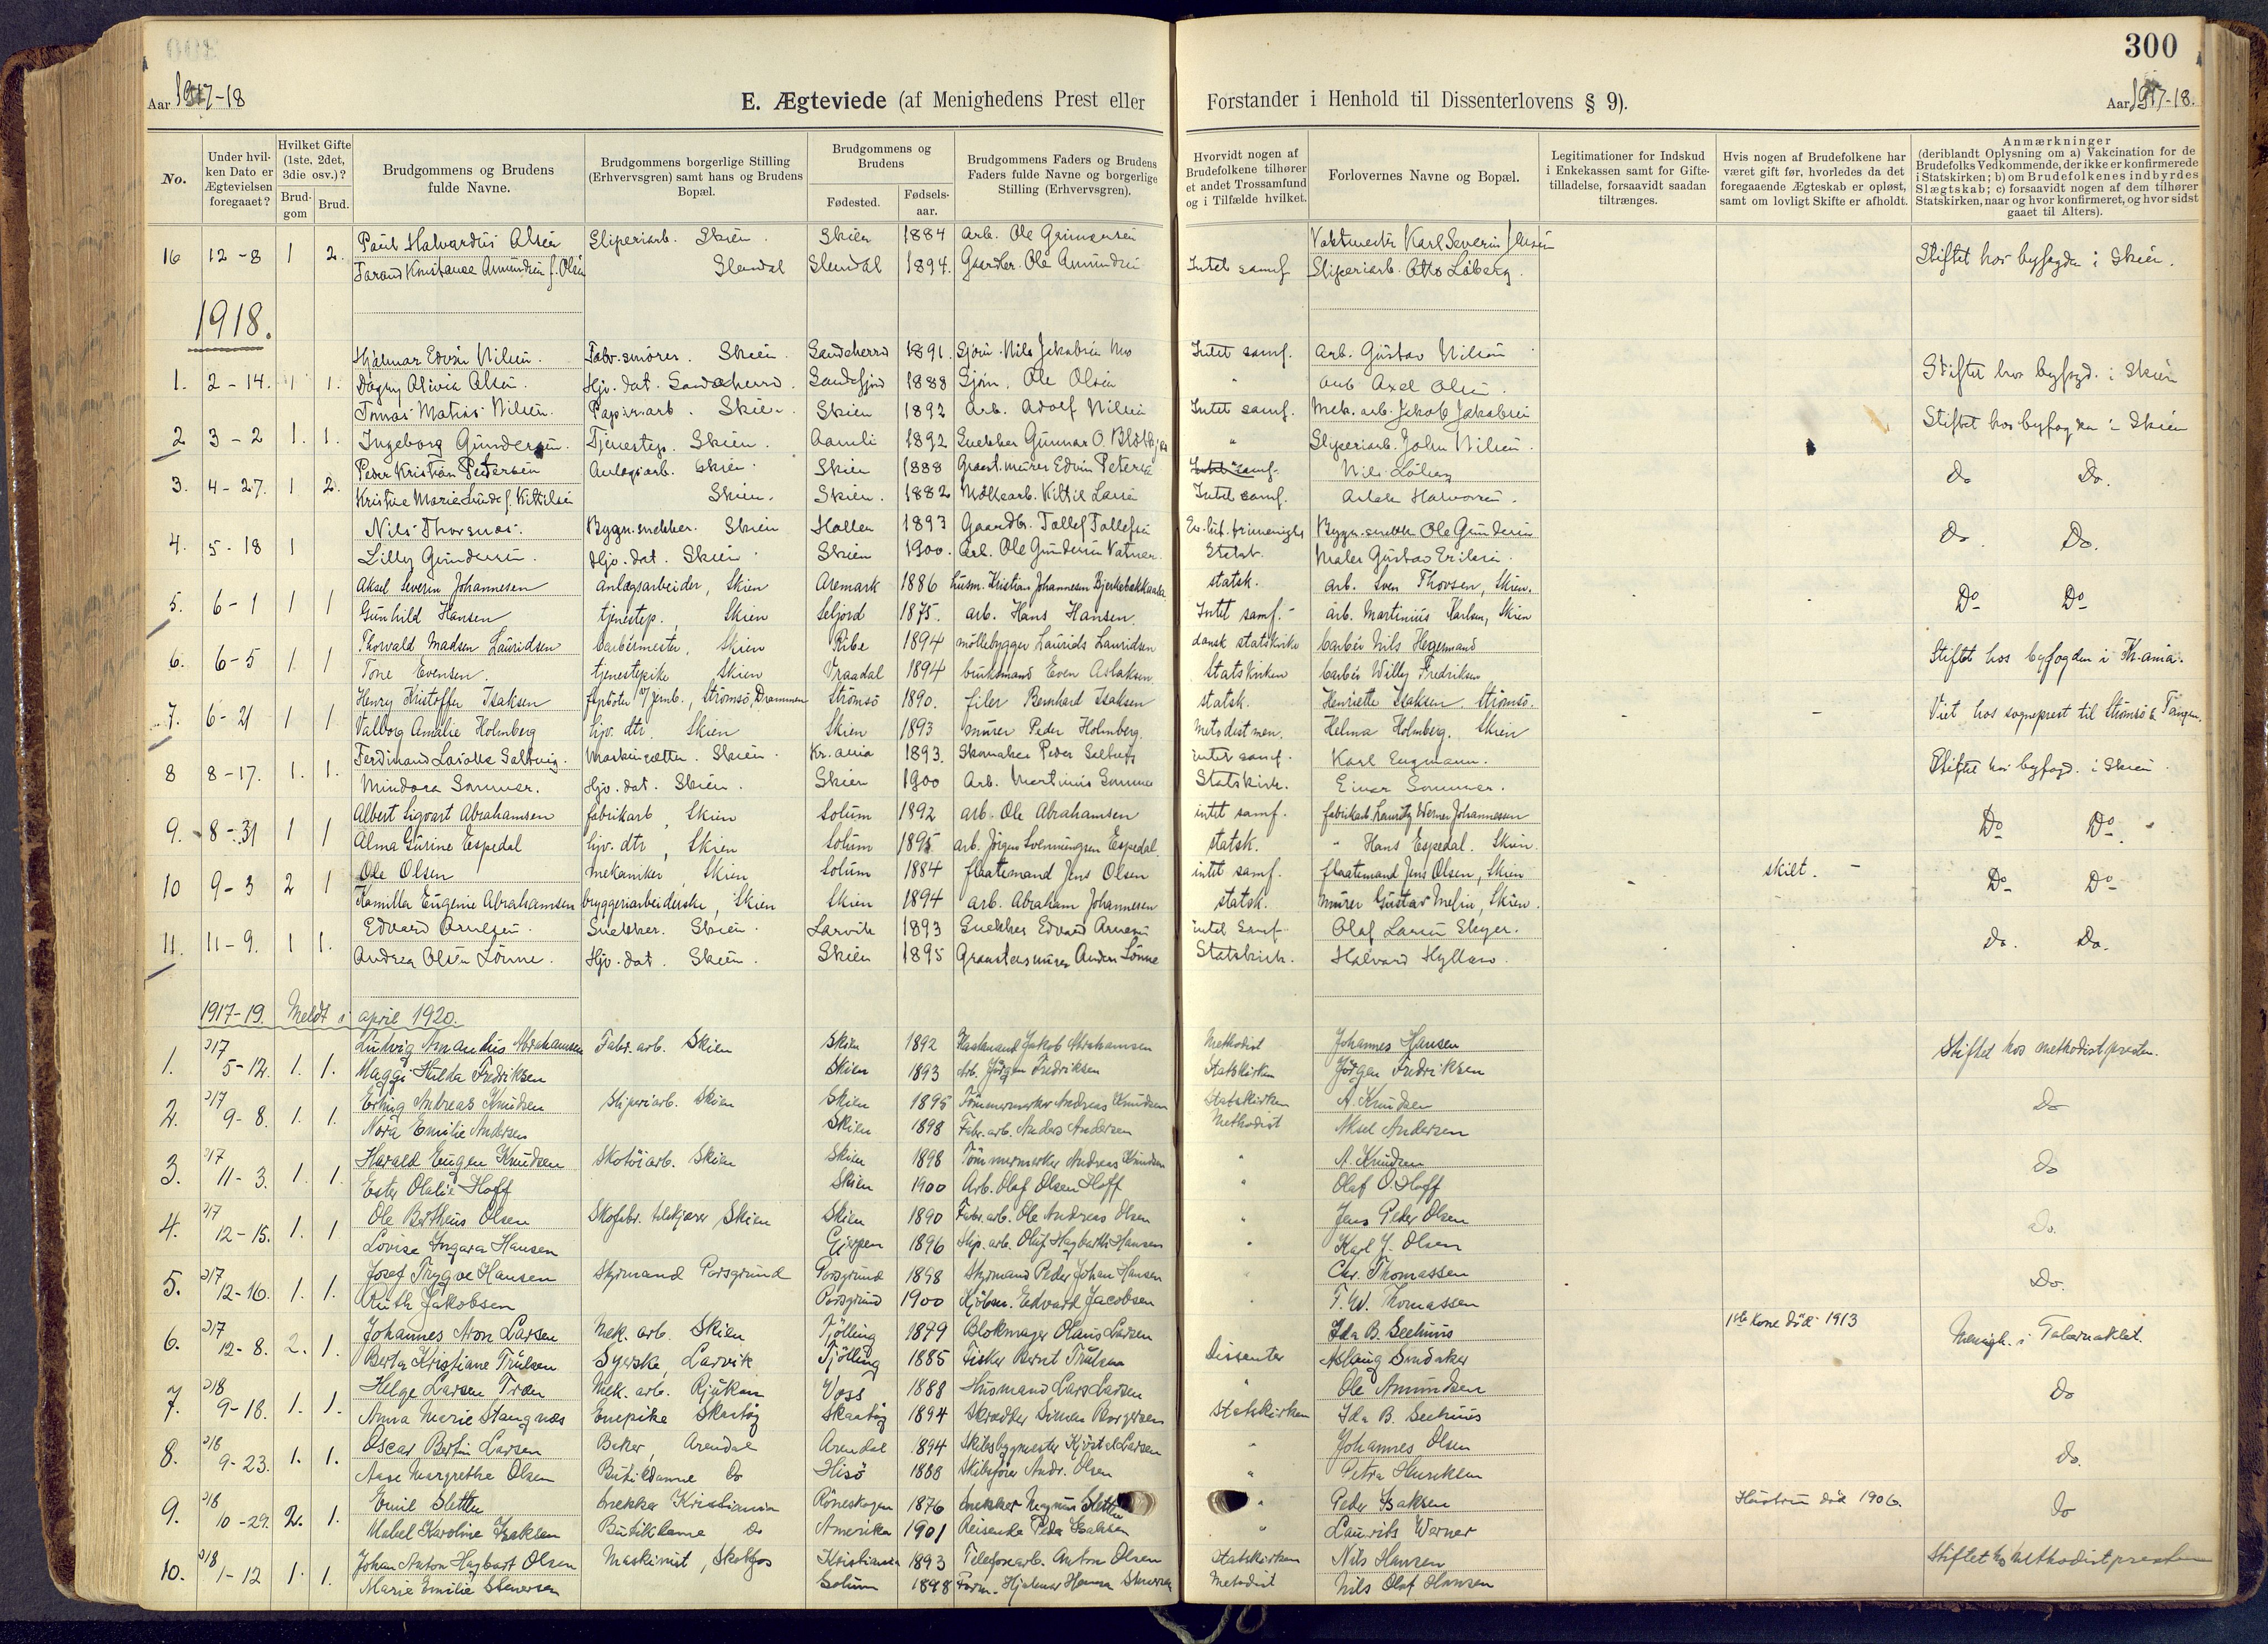 300
Aar 1917-18
E. Ægteviede (af Menighedens Prest eller Forstander i Henhold til Dissenterlovens § 9).
Aar 1917-18.
No.
Under hvil-
ken Dato er
Ægtevielsen
foregaaet?
Hvilket Gifte
(1ste, 2det,
3die osv.)?
Brud-
gom
Brud.
Brudgommens og Brudens
fulde Navne.
Brudgommens borgerlige Stilling
(Erhvervsgren) samt hans og Brudens
Bopæl.
Brudgommens og
Brudens
Fødested.
Fødsels-
aar.
Brudgommens Faders og Brudens
Faders fulde Navne og borgerlige
Stilling (Erhvervsgren).
Hvorvidt nogen af
Brudefolkene tilhører
et andet Trossamfund
og i Tilfælde hvilket.
Forlovernes Navne og Bopæl.
Legitimationer for Indskud
i Enkekassen samt for Gifte-
tilladelse, forsaavidt saadan
tiltrænges.
Hvis nogen af Brudefolkene har
været gift før, hvorledes da det
foregaaende Ægteskab er opløst,
samt om lovligt Skifte er afholdt.
Anmærkninger
(deriblandt Oplysning om a) Vakcination for de
Brudefolks Vedkommende, der ikke er konfirmerede
i Statskirken; b) om Brudefolkenes indbyrdes
Slægtskab; c) forsaavidt nogen af dem tilhører
Statskirken, naar og hvor konfirmeret, og hvor sidst
gaaet til Alters).
16 12-8 1 2. Paul Halvardus Olsen Sliperiarb. Skien Skien 1884 Arb. Ole
Olsen 1894. Gaardbr. Ole Amundsen Intet samf. Sliperiarb. Otto Løberg. Stiftet hos byfogden i Skien.
1918.
Hjalmar Edvin Nilsen. Skien Sandeherred 1891. Intet samf. Arb. Gustav Nilsen
1. 2-14. 1 1. Dagny Olivia Olsen. Hjv. dat. Sandeherred. Sandefjord 1888 Sjøm. Ole Olsen " Arb Axel Olsen. Stiftet hos byfogd. i Skien
Tomas Matias Nilsen. Papirarb. Skien Skien 1892 Arb. Adolf Nilsen Intet samf. Mek. arb. Jakob Jakobsen
2 3-2 1. 1. Ingeborg Gundersen. Tjenestep. Skien. Aamli 1892 Snekker Gunnar O. " Sliperiarb. John Nilsen. Stiftet hos byfogden i Skien
Peder Kristian Petersen Anlægsarb. Skien Skien 1888 Graast.murer Edvin Petersen Nils Løberg
3. 4-27. 1 2. Skien. Skien. 1882 Møllearb. Kittil Larsen Intet samf. Halvorsen. do Do.
Nils Thorsnæs. Bygn.snekker. Skien Hollen 1893 Gaardbr. Tollef Tollefsen Ev. lut. frimenigh Bygn.snekk Ole Gundersen
4. 5-18 1 Lilly Gundersen. Hjv. dat. Skien Skien 1900. Arb. Ole Gundersen Vatner. Statsk. Maler Gustav Eriksen. do. Do.
Aksel Severin Johannesen anlægsarbeider, Skien Aremark 1886 husm. Kristian Johannesen Bjerkebækkaasa statsk. arb. Sven Thorsen, Skien.
5. 6-1 1 1 Gunhild Hansen tjenestep., Skien Seljord 1875. arb. Hans Hansen. Intet samf. arb. Martinius Karlsen, Skien Do Do
Thorvald Madsen Lauridsen barbermester, Skien Ribe 1894 møllebygger Laurids Lauridsen dansk statskirke barbér Nils Hegermand
6. 6-5 1 1 Tone Evensen. tjenestepike Skien Vraadal 1894 bruksmand Even Aslaksen Statskirken barbér Willy Fredriksen Stiftet hos byfogden i Kr.ania.
Henry Kristoffer Isaksen fyrbøter v/ jernb., Strømsø, Drammen Strømsø 1890. filer Bernhard Isaksen statsk. Henriette Isaksen. Strømsø.
7. 6-21 1 1 Valborg Amalie Holmberg hjv. dtr. Skien Skien 1893 murer Peder Holmberg. Metodistmen. Helma Holmberg. Skien Viet hos sogneprest til Strømsø & Tangen.
Ferdinand Lasalle Saltvig. Maskinsætter. Skien. Kr.ania 1893. Skomaker Peder intet samf. Karl Engmann.
8 8-17. 1. 1. Mindora Sommer. Hjv. dat. Skien. Skien 1900 Arb. Martinius Sommer Statskirk. Einar Sommer. Stiftet hos byfogd. i Skien.
Albert Sigvart Abrahamsen fabrikarb, Skien Solum 1892 arb. Ole Abrahamsen intet samf. fabrikarb. Lauritz Werner Johannessen
9. 8-31 1 1 Alma Gurine Espedal hjv. dtr, Skien Solum 1895 arb. Jørgen Svenningsen Espedal. statsk. " Hans Espedal. Skien. Do Do
Ole Olsen mekaniker, Skien Solum 1884 flaatemand Jens Olsen intet samf. flaatemand Jens Olsen, Skien skilt.
10 9-3 2 1 Kamilla Eugenie Abrahamsen bryggeriarbeiderske, Skien Skien 1894 arb. Abraham Johannesen statsk. murer Gustav Melin, Skien. Do Do
Edvard Arnesen. Snekker. Skien. Larvik 1893 Snekker Edvard Arnesen intet samf. Olaf Larsen
11. 11-9. 1 1. Andrea Olsen Lønne. Hjv. dat. Skien. Skien 1895 Graastensmurer Anders Lønne Statskirk. Halvard do. Do.
1917-19. Meldt i april 1920.
1. 1917 5-12. 1. 1. Ludvig Amandus Abrahamsen Fabr. arb. Skien Skien 1892 Flaatmand Jakob Abrahamsen Methodist Johannes Hansen Stiftet hos methodistpresten.
Maggi Hilda Fredriksen Skien 1893 Arb. Jørgen Fredriksen Statskirken Jørgen Fredriksen
2. 1917 9-8. 1. 1. Erling Andreas Knudsen Sliperiarb. Skien Skien 1895 Tømmermerker Andreas Knudsen Statskirken A. Knudsen Do
Nora Emilie Andersen Skien 1898 Fabr. arb. Anders Andersen Methodist Aksel Andersen
3. 1917 11-3. 1. 1. Harald Eugen Knudsen Skotøiarb. Skien Skien 1898 Tømmermerker Andreas Knudsen " A. Knudsen Do
Ester Olalie Hoff Skien 1900 Arb. Olaf Olsen Hoff " Olaf O. Hoff
4. 1917 12-15. 1. 1 Ole Bertheus Olsen Skofabr. tilskjærer Skien Skien 1890 Fabr. arb. Ole Andreas Olsen " Jens Peder Olsen Do.
Lovise Ingara Hansen Gjerpen 1896 Slip. arb. Oluf Hagbarth Hansen " Karl J. Olsen
5. 1917 12-16. 1. 1. Josef Trygve Hansen Styrmand Porsgrund Porsgrund 1898 Styrmand Peder Johan Hansen " Chr. Thomassen Do.
Ruth Jakobsen Porsgrund 1900 Kjøbm. Edvard Jacobsen " T. W. Thomassen
6. 1917 12-8. 2. 1. Johannes Aron Larsen Mek. arb. Skien Tjølling 1879 Blokmager Olaus Larsen " Ida B. Seehuus 1ste kone død 1913 Menigh. i Tabernaklet.
Berta Kristiane Trulsen Syerske, Larvik Tjølling 1885 Fisker Bernt Trulsen Dissenter Aslaug
7. 1918 9-18. 1. 1. Helge Larsen Træn Mek. arb. Rjukan Voss 1888 Husmand Lars Larsen " Ole Amundsen Do
Anna Marie Stangnæs Enepike Skaatøy Skaatøy 1894 Skrædder Simon Borgersen Statskirken Ida B. Seehuus
8. 1918 9-23. 1. 1. Oscar Bertin Larsen Baker, Arendal Arendal 1894 Skibsbygmester Larsen " Johannes Olsen Do.
Aase Margrethe Olsen Butikdame Do Hisø 1888 Skibsfører Andr. Olsen " Petra Henriksen
9. 1918 10-29. 2. 1. Emil Sletten Snekker Kristiania 1876 Snekker Magnus Sletten " Peder Isaksen Hustru død 1906. Do
Mabel Karoline Isaksen Butikdame Do Amerika 1901 Reisende Peder Isaksen " Laurits Werner
10. 1918 1-12 1. 1. Johan Anton Hagbart Olsen Maskinist, Skotfos Kristiania 1893 Telefonarb. Anton Olsen Statskirken Nils Hansen Stiftet hos Methodistpresten
Marie Emilie Solum 1898 Form. Hjalmar Metodist Nils Olaf Hansen